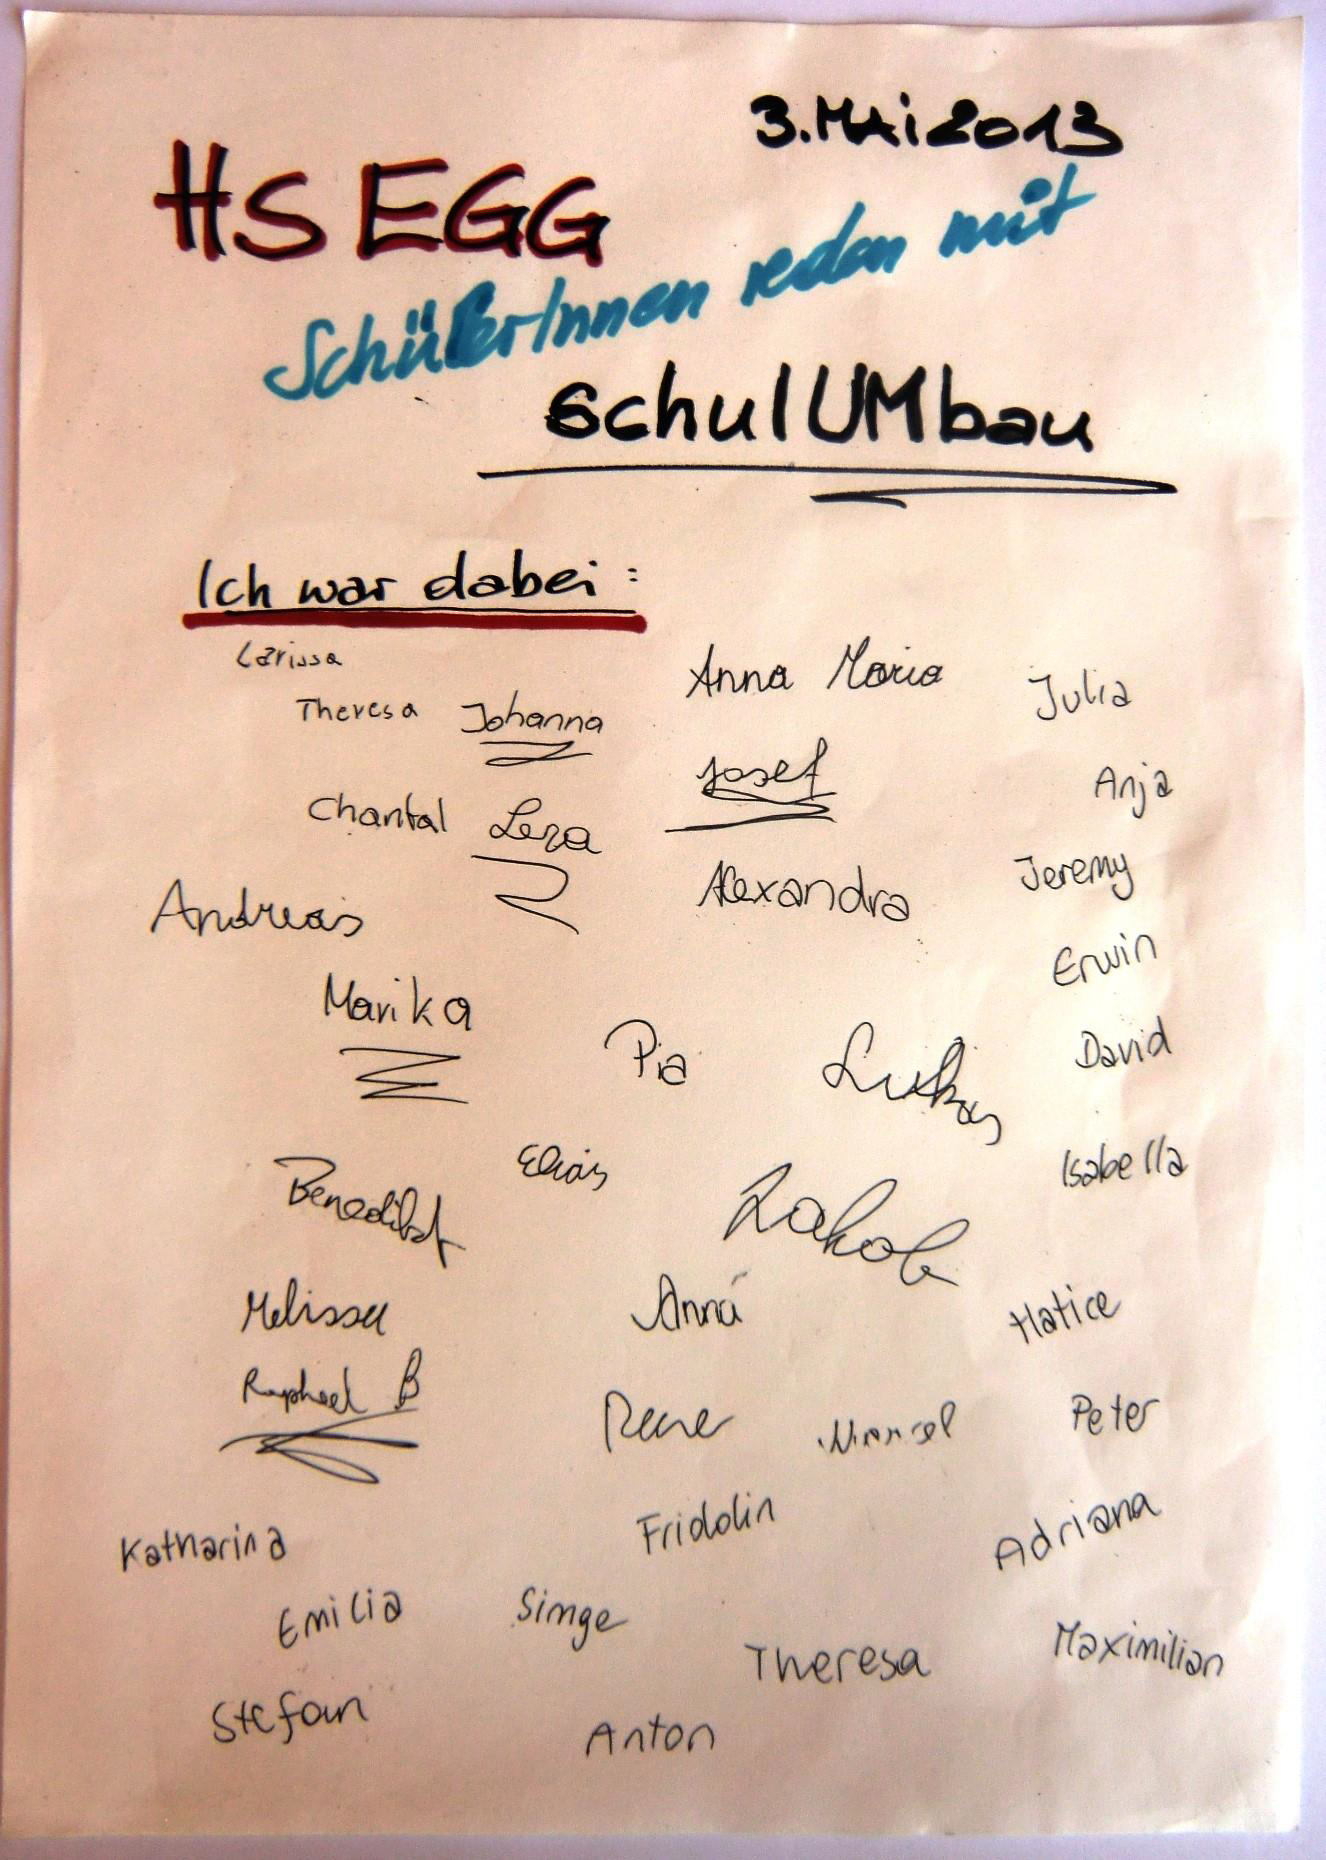 3. MAi 2013
HS EGG
SchülerInnen reden mit
schulUMbau
Ich war dabei:
Larissa
Anna Maria
Julia
Theresa Johanna
Josef
Anja
Chantal Lena
Alexandra
Jeremy
Andreas
Erwin
Marika
Pia
Lukas
David
Elias
Isabella
Benedikt
Jakob
Melissa
Anna
Hatice
Raphael B
Rene
Marcel
Peter
Katharina
Fridolin
Adriana
Emilia
Simge
Theresa
Maximilian
Stefan
Anton